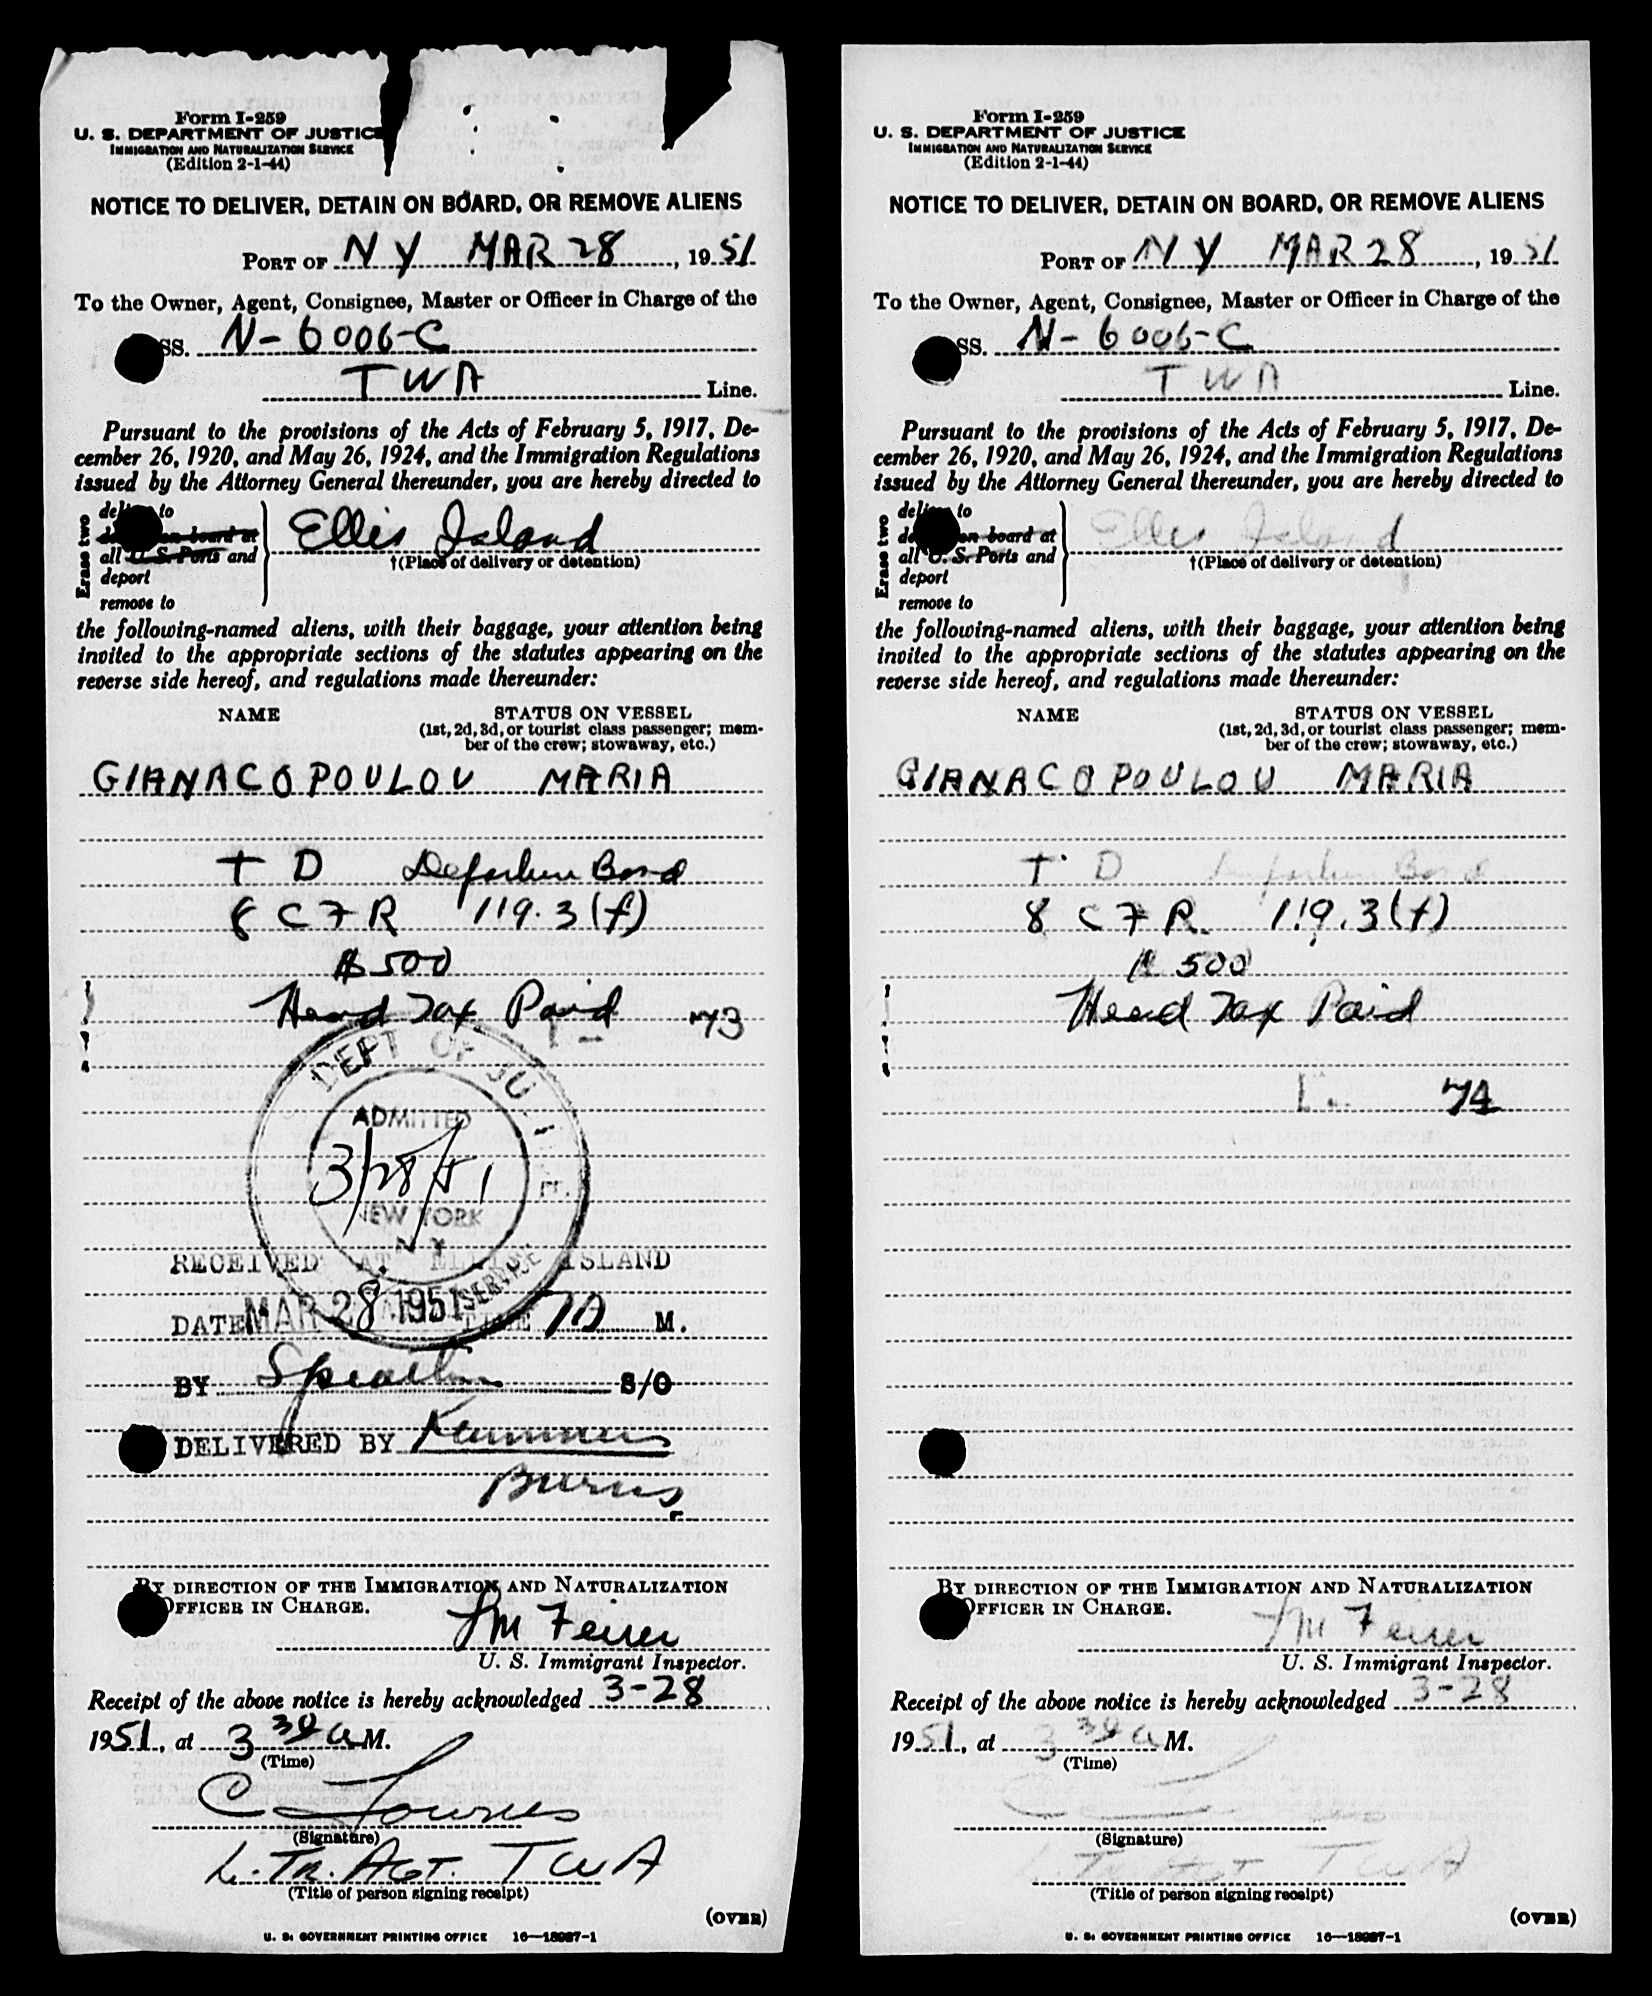 Form I-259
U. S. DEPARTMENT OF JUSTICE
IMMIGRATION AND NATURALIZATION SERVICE
(Edition 2-1-44)
NOTICE TO DELIVER, DETAIN ON BOARD, OR REMOVE ALIENS
PORT OF N Y MAR 28, 1951
To the Owner, Agent, Consignee, Master or Officer in Charge of the
SS. N-6006-C
TWA Line.
Pursuant to the provisions of the Acts of February 5, 1917, De-
cember 26, 1920, and May 26, 1924, and the Immigration Regulations
issued by the Attorney General thereunder, you are hereby directed to
Erase two
to
on board at
all U. S. Ports and
deport
remove to
Ellis Island
†(Place of delivery or detention)
the following-named aliens, with their baggage, your attention being
invited to the appropriate sections of the statutes appearing on the
reverse side hereof, and regulations made thereunder:
NAME STATUS ON VESSEL
(1st, 2d, 3d, or tourist class passenger; mem-
ber of the crew; stowaway, etc.)
GIANACOPOULOU MARIA
T D Departure Bond
8 CFR 119.3(f)
$500
Head Tax Paid 73
DEPT OF JUST
ADMITTED
3/28/51
NEW YORK
N Y
SERVICE
RECEIVED AT ELLIS ISLAND
DATE MAR 28 1951 TIME 7A M.
BY S/O
DELIVERED BY
Burns
BY DIRECTION OF THE IMMIGRATION AND NATURALIZATION
OFFICER IN CHARGE.
U. S. Immigrant Inspector.
Receipt of the above notice is hereby acknowledged 3-28
1951, at 3 30 a M.
(Time)
(Signature)
L. TR. AGT. TWA
(Title of person signing receipt)
(OVER)
U. S. GOVERNMENT PRINTING OFFICE 16—18087-1
Form I-259
U. S. DEPARTMENT OF JUSTICE
IMMIGRATION AND NATURALIZATION SERVICE
(Edition 2-1-44)
NOTICE TO DELIVER, DETAIN ON BOARD, OR REMOVE ALIENS
PORT OF N Y MAR 28, 1951
To the Owner, Agent, Consignee, Master or Officer in Charge of the
SS. N-6006-C
TWA Line.
Pursuant to the provisions of the Acts of February 5, 1917, De-
cember 26, 1920, and May 26, 1924, and the Immigration Regulations
issued by the Attorney General thereunder, you are hereby directed to
Erase two
to
on board at
all U. S. Ports and
deport
remove to
Ellis Island
†(Place of delivery or detention)
the following-named aliens, with their baggage, your attention being
invited to the appropriate sections of the statutes appearing on the
reverse side hereof, and regulations made thereunder:
NAME STATUS ON VESSEL
(1st, 2d, 3d, or tourist class passenger; mem-
ber of the crew; stowaway, etc.)
GIANACOPOULOU MARIA
T D Departure Bond
8 CFR 119.3(f)
$500
Head Tax Paid
74
BY DIRECTION OF THE IMMIGRATION AND NATURALIZATION
OFFICER IN CHARGE.
U. S. Immigrant Inspector.
Receipt of the above notice is hereby acknowledged 3-28
1951, at 3 30 a M.
(Time)
(Signature)
L. TR. AGT TWA
(Title of person signing receipt)
(OVER)
U. S. GOVERNMENT PRINTING OFFICE 16—18087-1